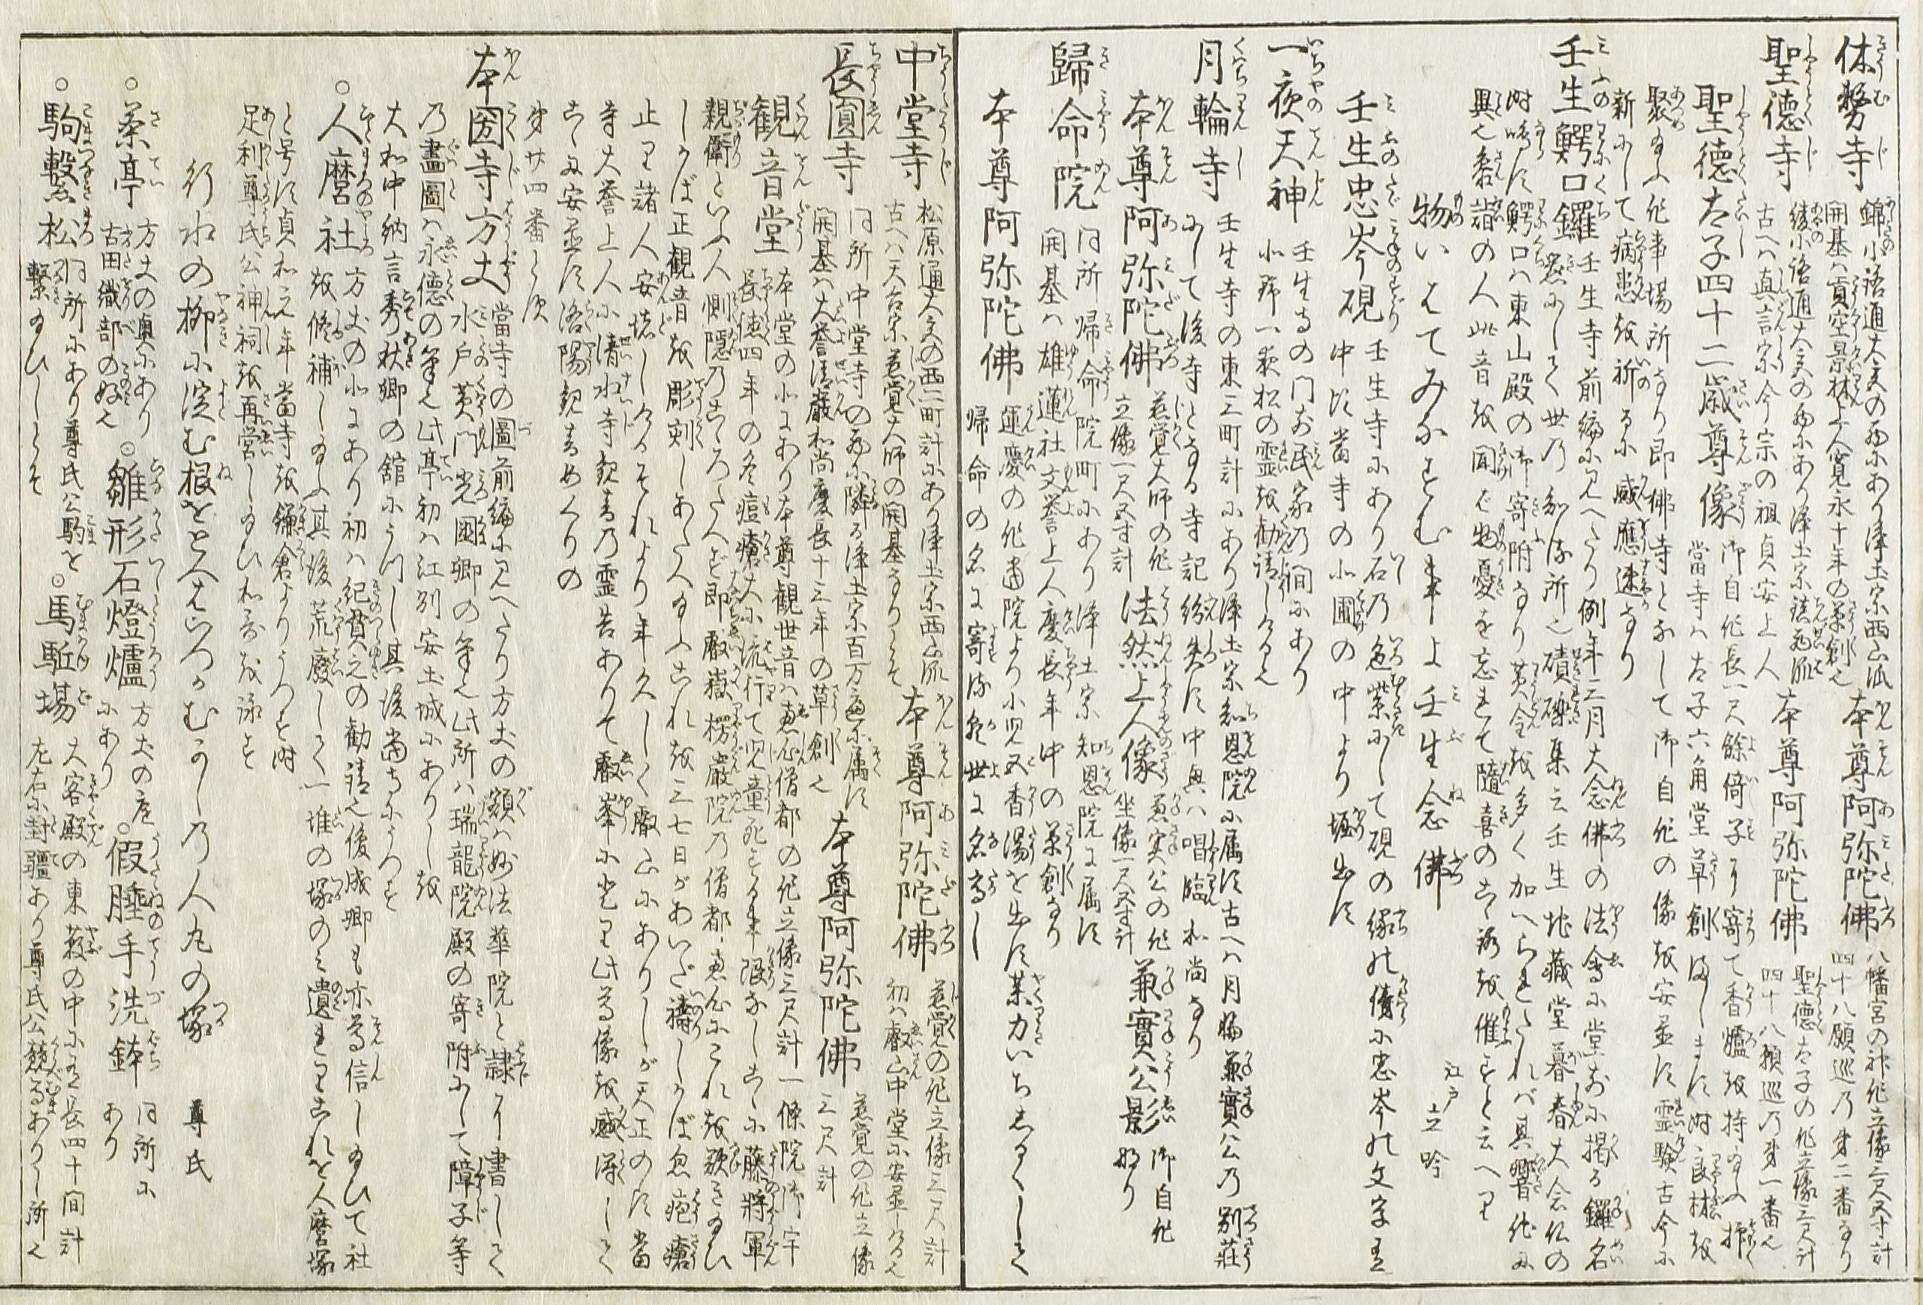 休務寺 錦小路通大宮の西にあり浄土宗西山派 本尊阿弥陀佛 八幡宮の神作立像三尺五寸計
開基ハ貢空景林上人寛永十年の草創也 四十八願巡乃第二番なり
聖徳寺 綾小路通大宮の西にあり浄土宗鎮西派 本尊阿弥陀佛 聖徳太子の作立像三尺計
古へハ真言宗今宗の祖貞安上人 四十八願巡乃第一番也
聖徳太子四十二歳尊像 御自作長一尺餘倚子に寄て香爐を持給ふ
當寺ハ太子六角堂草創まします時良材を
聚給ふ作事場所なり即佛寺となして御自作の像を安置す霊験古今に
新にして病患を祈るに感應速なり
壬生鰐口鑼 壬生寺前編に見へたり例年三月大念佛の法會に堂前に掲る鑼名
器にして世乃知る所也磧礫集云壬生地蔵堂暮春大念仏の
時鳴す鰐口ハ東山殿の御寄附なり黄金を多く加へられたれバ其響他に
異也参詣の人此音を聞ば物憂を忘れて隨喜のこゝろを催すと云へり
物いはてみなすむ事よ壬生念佛 江戸 立吟
壬生忠岑硯 壬生寺にあり石乃色紫にして硯の縁の傍に忠岑の文字有
中比當寺の北圃の中より堀出す
一夜天神 壬生寺の門前民家乃間にあり
北野一夜松の霊を勧請しける也
月輪寺 壬生寺の東三町計にあり浄土宗知恩院に属す古へハ月輪兼實公乃別荘
にして後寺となる寺記紛失す中興ハ唱臨和尚なり
本尊阿弥陀佛 慈覚大師の作立像一尺五寸計 法然上人像 兼実公の作坐像一尺五寸計 兼實公影 御自作なり
歸命院 同所帰命院町にあり浄土宗知恩院に属す
開基ハ雄蓮社文誉上人慶長年中の草創なり
本尊阿弥陀佛 運慶の作當院より小児五香湯を出す薬力いちしるくして
帰命の名に寄流れ世に名高し
中堂寺 松原通大宮の西二町計にあり浄土宗西山派 本尊阿弥陀佛 慈覚の作立像三尺計
古ハ天台宗慈覚大師の開基なりとそ 初ハ叡山中堂に安置しける也
長圓寺 同所中堂寺の西に隣る浄土宗百万遍に属す 本尊阿弥陀佛 慈覚の作立像
開基ハ大誉清巌和尚慶長十三年の草創也 三尺計
観音堂 本堂の北にあり本尊観世音ハ恵心僧都の作立像三尺計一條院御宇
長徳四年の冬痘瘡大に流行て児童死する事限なしこゝに藤将軍
親衛といふ人惻隠乃こゝろたへず即叡嶽楞巌院乃僧都恵心にこれを歎き給ひ
しかば正観音を彫刻しあたへ給ふこれを三七日があいだ禱しかば忽疱瘡
止て諸人安堵しけるそれより年久しく叡山にありしが天正のすへ當
寺大誉上人に清水寺観音乃霊告ありて叡峯に光りて此尊像を感得して
こゝに安置す洛陽観音めくりの
第廿四番とす
本圀寺方丈 當寺の圖前編に見へたり方丈の額ハ妙法華院と隷に書して
水戸黄門光圀卿の筆也此所ハ瑞龍院殿の寄附にして障子等
乃畫圖ハ永徳の筆也此亭初ハ江州安土城にありしを
大和中納言秀秋卿の舘にうつし其後當寺にうつす
○人麿社 方丈の北にあり初ハ紀貫之の勧請也後成卿も亦尊信し給ひて社
を修補し給ふ其後荒廢して一堆の塚のミ遺れりこれを人麿塚
と号す貞和元年當寺を鎌倉よりうつす時
足利尊氏公神祠を再営し給ひ和歌を詠す
行水の柳に淀む根をとへはいつかむかしの人丸の塚 尊氏
○茶亭 方丈の奥にあり古田織部の好也 ○雛形石燈爐 方丈の庭にあり ○假睡手洗鉢 同所にあり
○駒繋松 同所にあり尊氏公駒を繋給ひしとそ ○馬駈場 大客殿の東薮の中にて長四十間計左右に封疆あり尊氏公競馬ありし所也